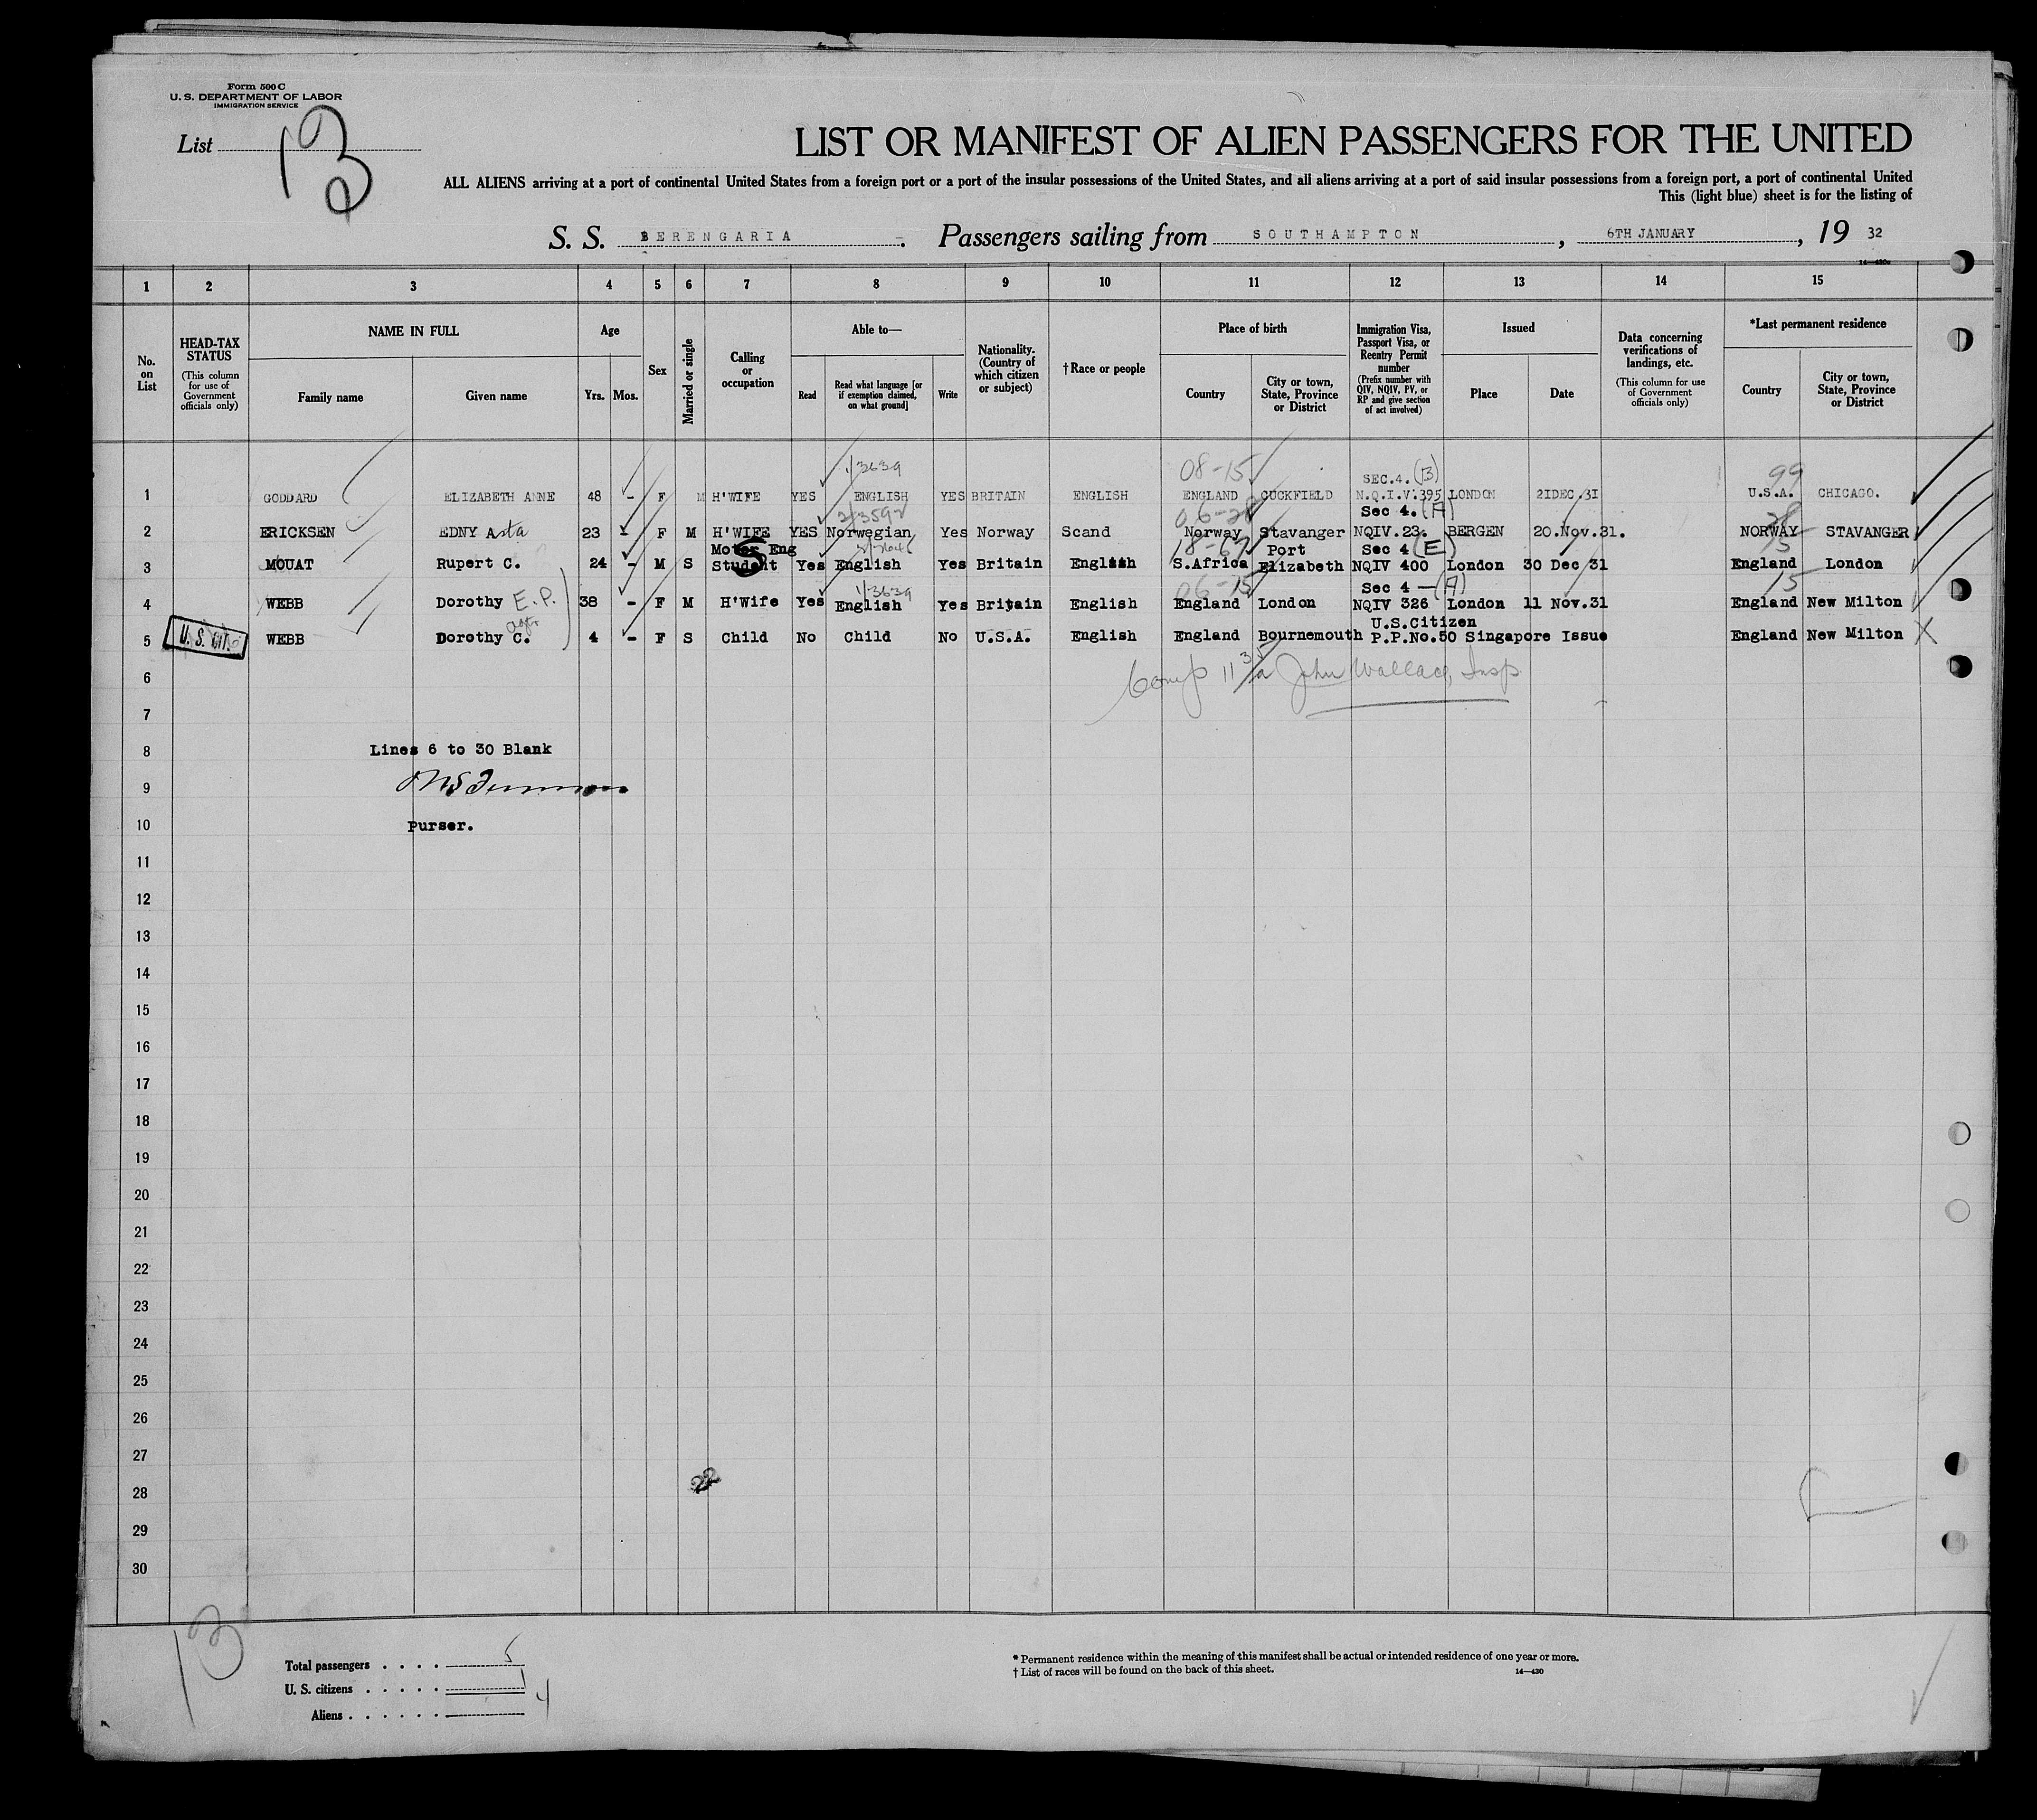 Form 500 C
U. S. DEPARTMENT OF LABOR
IMMIGRATION SERVICE
List 13
LIST OR MANIFEST OF ALIEN PASSENGERS FOR THE UNITED
ALL ALIENS arriving at a port of continental United States from a foreign port or a port of the insular possessions of the United States, and all aliens arriving at a port of said insular possessions from a foreign port, a port of continental United
This (light blue) sheet is for the listing of
S. S. BERENGARIA Passengers sailing from SOUTHAMPTON, 6TH JANUARY, 19 32
14—430
1 2 3 4 5 6 7 8 9 10 11 12 13 14 15
No. on List
HEAD-TAX STATUS (This column for use of Government officials only)
NAME IN FULL Family name Given name
Age Yrs. Mos.
Sex
Married or single
Calling or occupation
Able to— Read Read what language [or if exemption claimed, on what ground] Write
Nationality. (Country of which citizen or subject)
†Race or people
Place of birth Country City or town, State, Province or District
Immigration Visa, Passport Visa, or Reentry Permit number (Prefix number with QIV, NQIV, PV, or RP and give section of act involved)
Issued Place Date
Data concerning verifications of landings, etc. (This column for use of Government officials only)
*Last permanent residence Country City or town, State, Province or District
1/3639 08-15 SEC.4. (B) 99
1 GODDARD ELIZABETH ANNE 48 - F M H'WIFE YES ENGLISH YES BRITAIN ENGLISH ENGLAND CUCKFIELD N.Q.I.V.395 LONDON 21DEC.31 U.S.A. CHICAGO.
2/3592 06-28 Sec 4. (A) 28
2 ERICKSEN EDNY Asta 23 - F M H'WIFE YES Norwegian Yes Norway Scand Norway Stavanger NQIV.23. BERGEN 20.Nov.31. NORWAY STAVANGER
Motor Eng S 18-67 Port Sec 4 (E) 15
3 MOUAT Rupert C. 24 - M S Student Yes English Yes Britain English S.Africa Elizabeth NQIV 400 London 30 Dec 31 England London
1/3639 06-15 Sec 4 — (A) 15
4 WEBB Dorothy E.P. 38 - F M H'Wife Yes English Yes Britain English England London NQIV 326 London 11 Nov.31 England New Milton
U.S.Citizen
U. S. CIT. 5 WEBB Dorothy C. 4 - F S Child No Child No U.S.A. English England Bournemouth P.P.No.50 Singapore Issue England New Milton X
6 Comp 11 35/a John Wallace, Insp
7
8 Lines 6 to 30 Blank
9
10 Purser.
11
12
13
14
15
16
17
18
19
20
21
22
23
24
25
26
27
28
29
30
13
Total passengers . . . . 5
U. S. citizens . . . . . 1
Aliens . . . . . . 4
* Permanent residence within the meaning of this manifest shall be actual or intended residence of one year or more.
† List of races will be found on the back of this sheet. 14—430